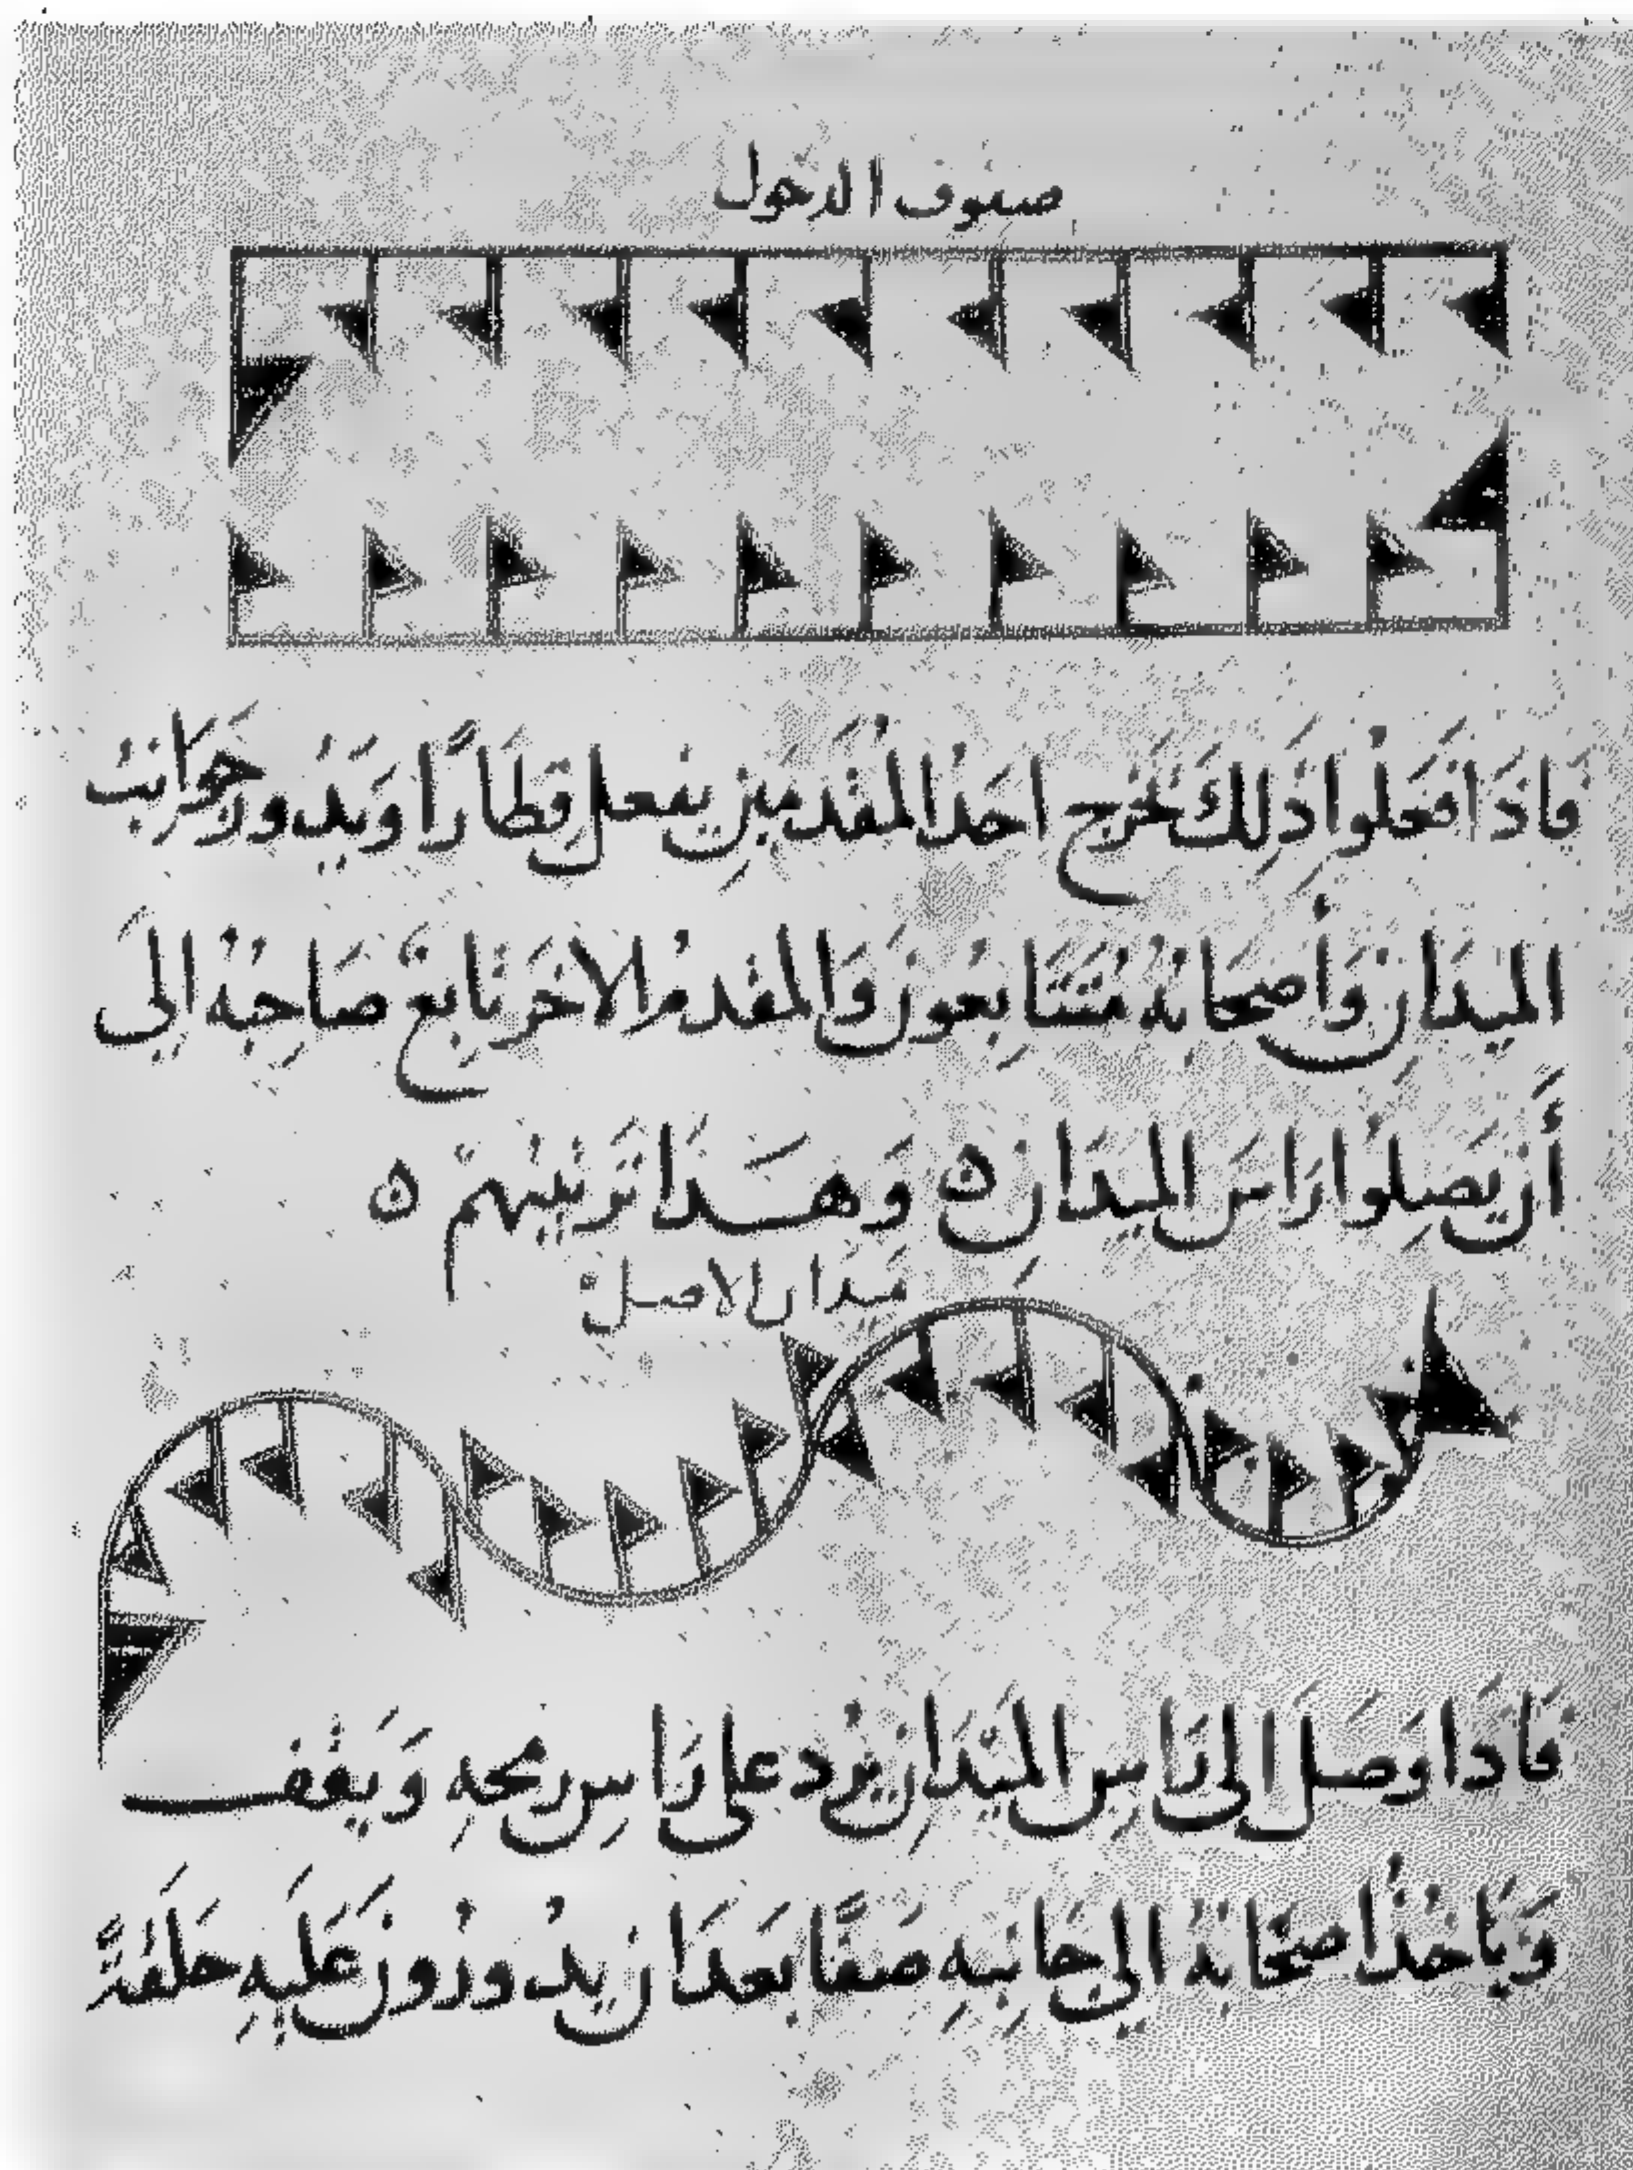 صفوف الدخول
فَاذَا فَعَلُوا ذَلِكَ يَخْرُج احَدُ المُقَدمَينِ يفعل قطَارًا وَيَدُور جَوَانبُ
الميدَان وَأصحَابُهُ مُتَتَابِعُونَ وَالمقَدمُ الاخَر تَابِعُ صَاحِبهُ الِىَ
أَن يَصِلُوا رَاسَ الميدَان ٥ وَهَذَا تَرتيبُهمْ ٥
مَيدان الاصل
فَاذَا وَصَلَ الى رَاسِ الميَدَان يَرُد على رَاسِ رمحهِ وَيَقفُ
وَيَاخُذُ اصحَابهُ الي جَانبهِ صَفًّا بَعدَ ان يدُورُونَ عَلَيهِ حَلَقَةً